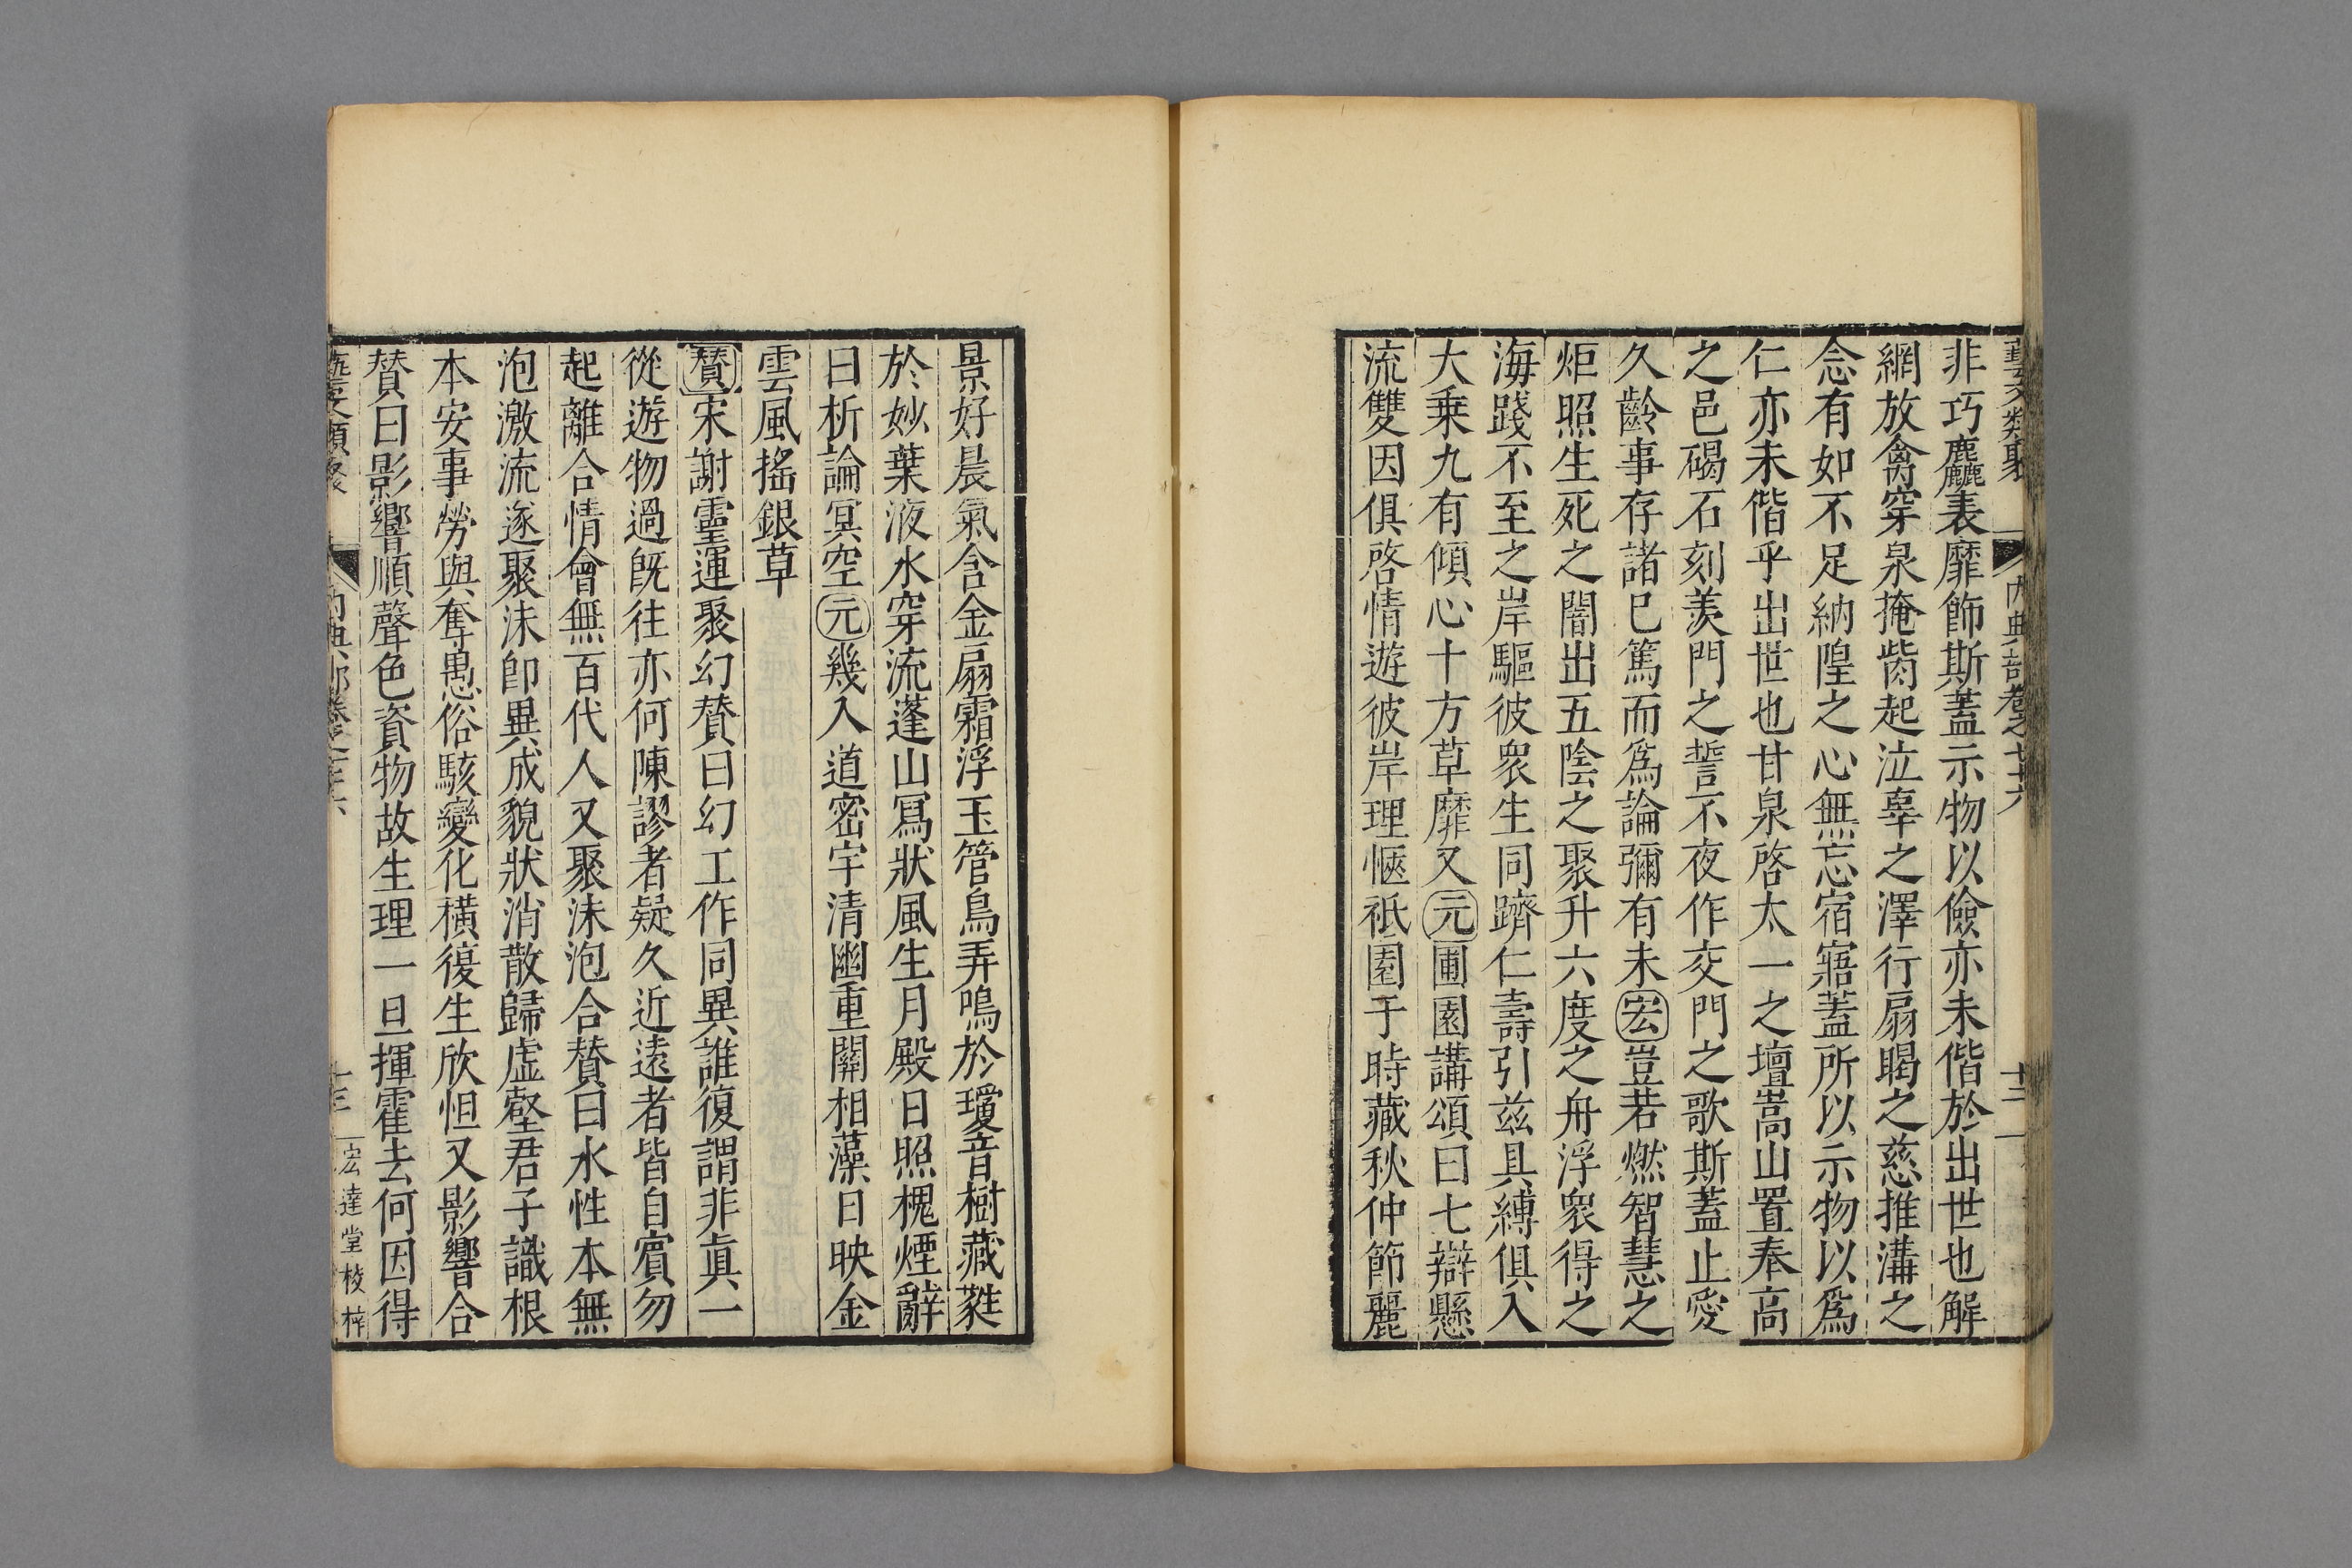 藝文類聚 內典部卷之七十六 十三
非巧麤表靡飾斯蓋示物以儉亦未偕於出世也解
網放禽穿泉掩胔起泣辜之澤行扇暍之慈推溝之
念有如不足納隍之心無忘宿寤蓋所以示物以爲
仁亦未偕乎出世也甘泉啓太一之壇嵩山置奉高
之邑碣石刻羨門之誓不夜作交門之歌斯蓋止愛
久齡事存諸已篤而爲論彌有未宏豈若燃智慧之
炬照生死之闇出五陰之聚升六度之舟浮衆得之
海踐不至之岸驅彼衆生同躋仁壽引兹具縛俱入
大乗九有傾心十方草靡又元圃園講頌曰七辯懸
流雙因俱啓情遊彼岸理愜祇園于時藏秋仲節麗
景好晨氣含金扇霜浮玉管鳥弄鳴於瓊音樹藏蕤
於妙葉液水穿流蓬山寫狀風生月殿日照槐煙辭
曰析論冥空元幾入道密宇清幽重關相藻日映金
雲風搖銀草
贊宋謝靈運聚幻贊曰幻工作同異誰復謂非眞一
從逝物過旣往亦何陳謬者疑久近遠者皆自賓勿
起離合情會無百代人又聚沫泡合贊曰水性本無
泡激流遂聚沫卽異成貌狀消散歸虛壑君子識根
本安事勞與奪愚俗駭變化橫復生欣怛又影響合
贊曰影響順聲色資物故生理一旦揮霍去何因得
藝文類聚 內典部卷之七十六 十三 宏達堂校梓